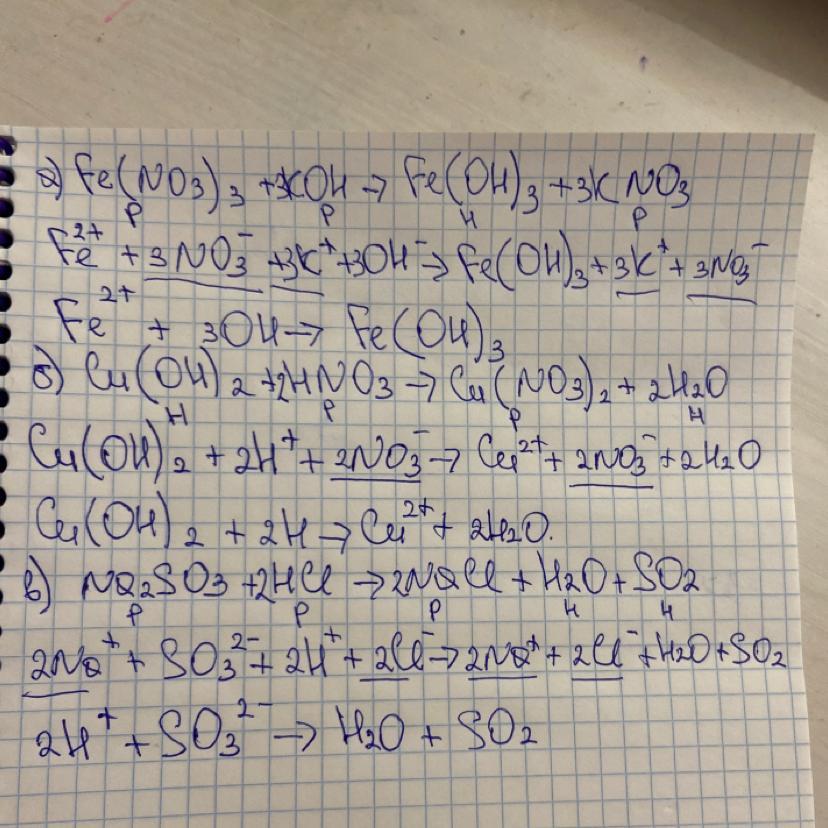 а) Fe(NO3)3 + 3KOH → Fe(OH)3 + 3KNO3
р р н р
Fe²⁺ + 3NO3⁻ + 3K⁺ + 3OH⁻ → Fe(OH)3 + 3K⁺ + 3NO3⁻
Fe²⁺ + 3OH → Fe(OH)3
б) Cu(OH)2 + 2HNO3 → Cu(NO3)2 + 2H2O
н р р н
Cu(OH)2 + 2H⁺ + 2NO3⁻ → Cu²⁺ + 2NO3⁻ + 2H2O
Cu(OH)2 + 2H → Cu²⁺ + 2H2O.
в) Na2SO3 + 2HCl → 2NaCl + H2O + SO2
р р р н н
2Na⁺ + SO3²⁻ + 2H⁺ + 2Cl⁻ → 2Na⁺ + 2Cl⁻ + H2O + SO2
2H⁺ + SO3²⁻ → H2O + SO2